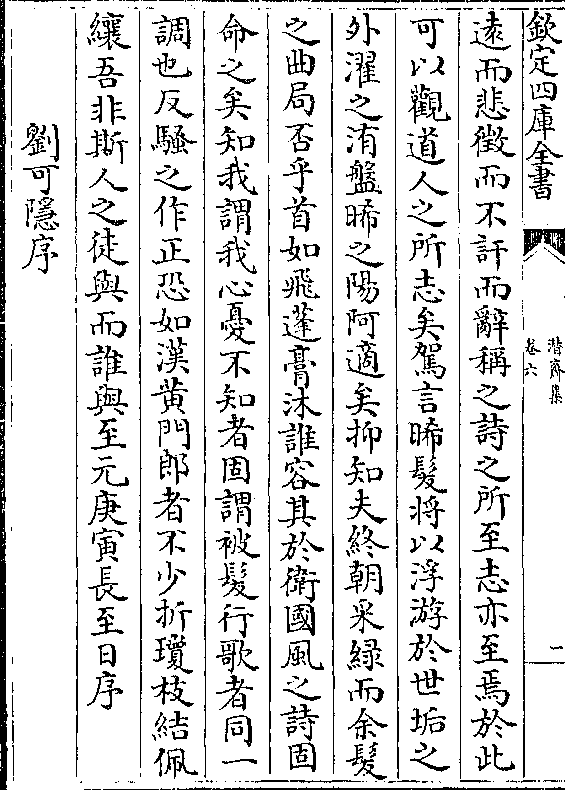 欽定四庫全書
潛齋集
卷六
一
遠而悲徵而不訐而辭稱之詩之所至志亦至焉於此
可以觀道人之所志矣駕言晞髮将以浮游於世垢之
外濯之洧盤晞之陽阿適矣抑知夫終朝采緑而余髮
之曲局否乎首如飛蓬膏沐誰容其於衛國風之詩固
命之矣知我謂我心憂不知者固謂被髮行歌者同一
調也反騷之作正恐如漢黄門郎者不少折瓊枝結佩
纕吾非斯人之徒與而誰與至元庚寅長至日序
劉可隱序